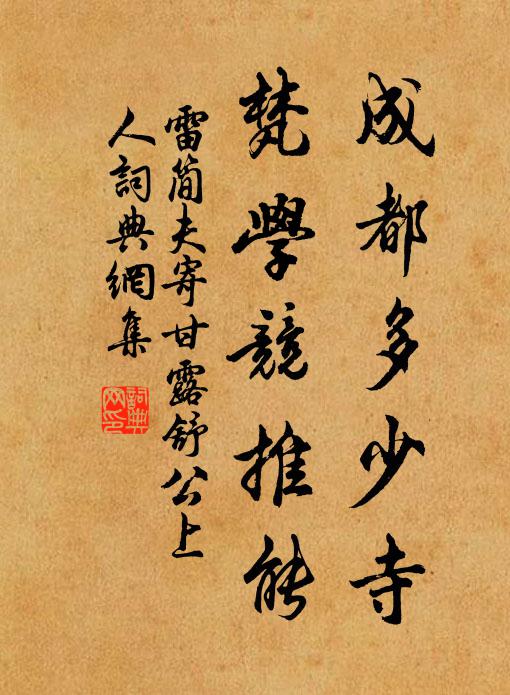 成都多少寺
梵學競推能
雷簡夫寄甘露舒公上
人詞典網集
詞典
网印